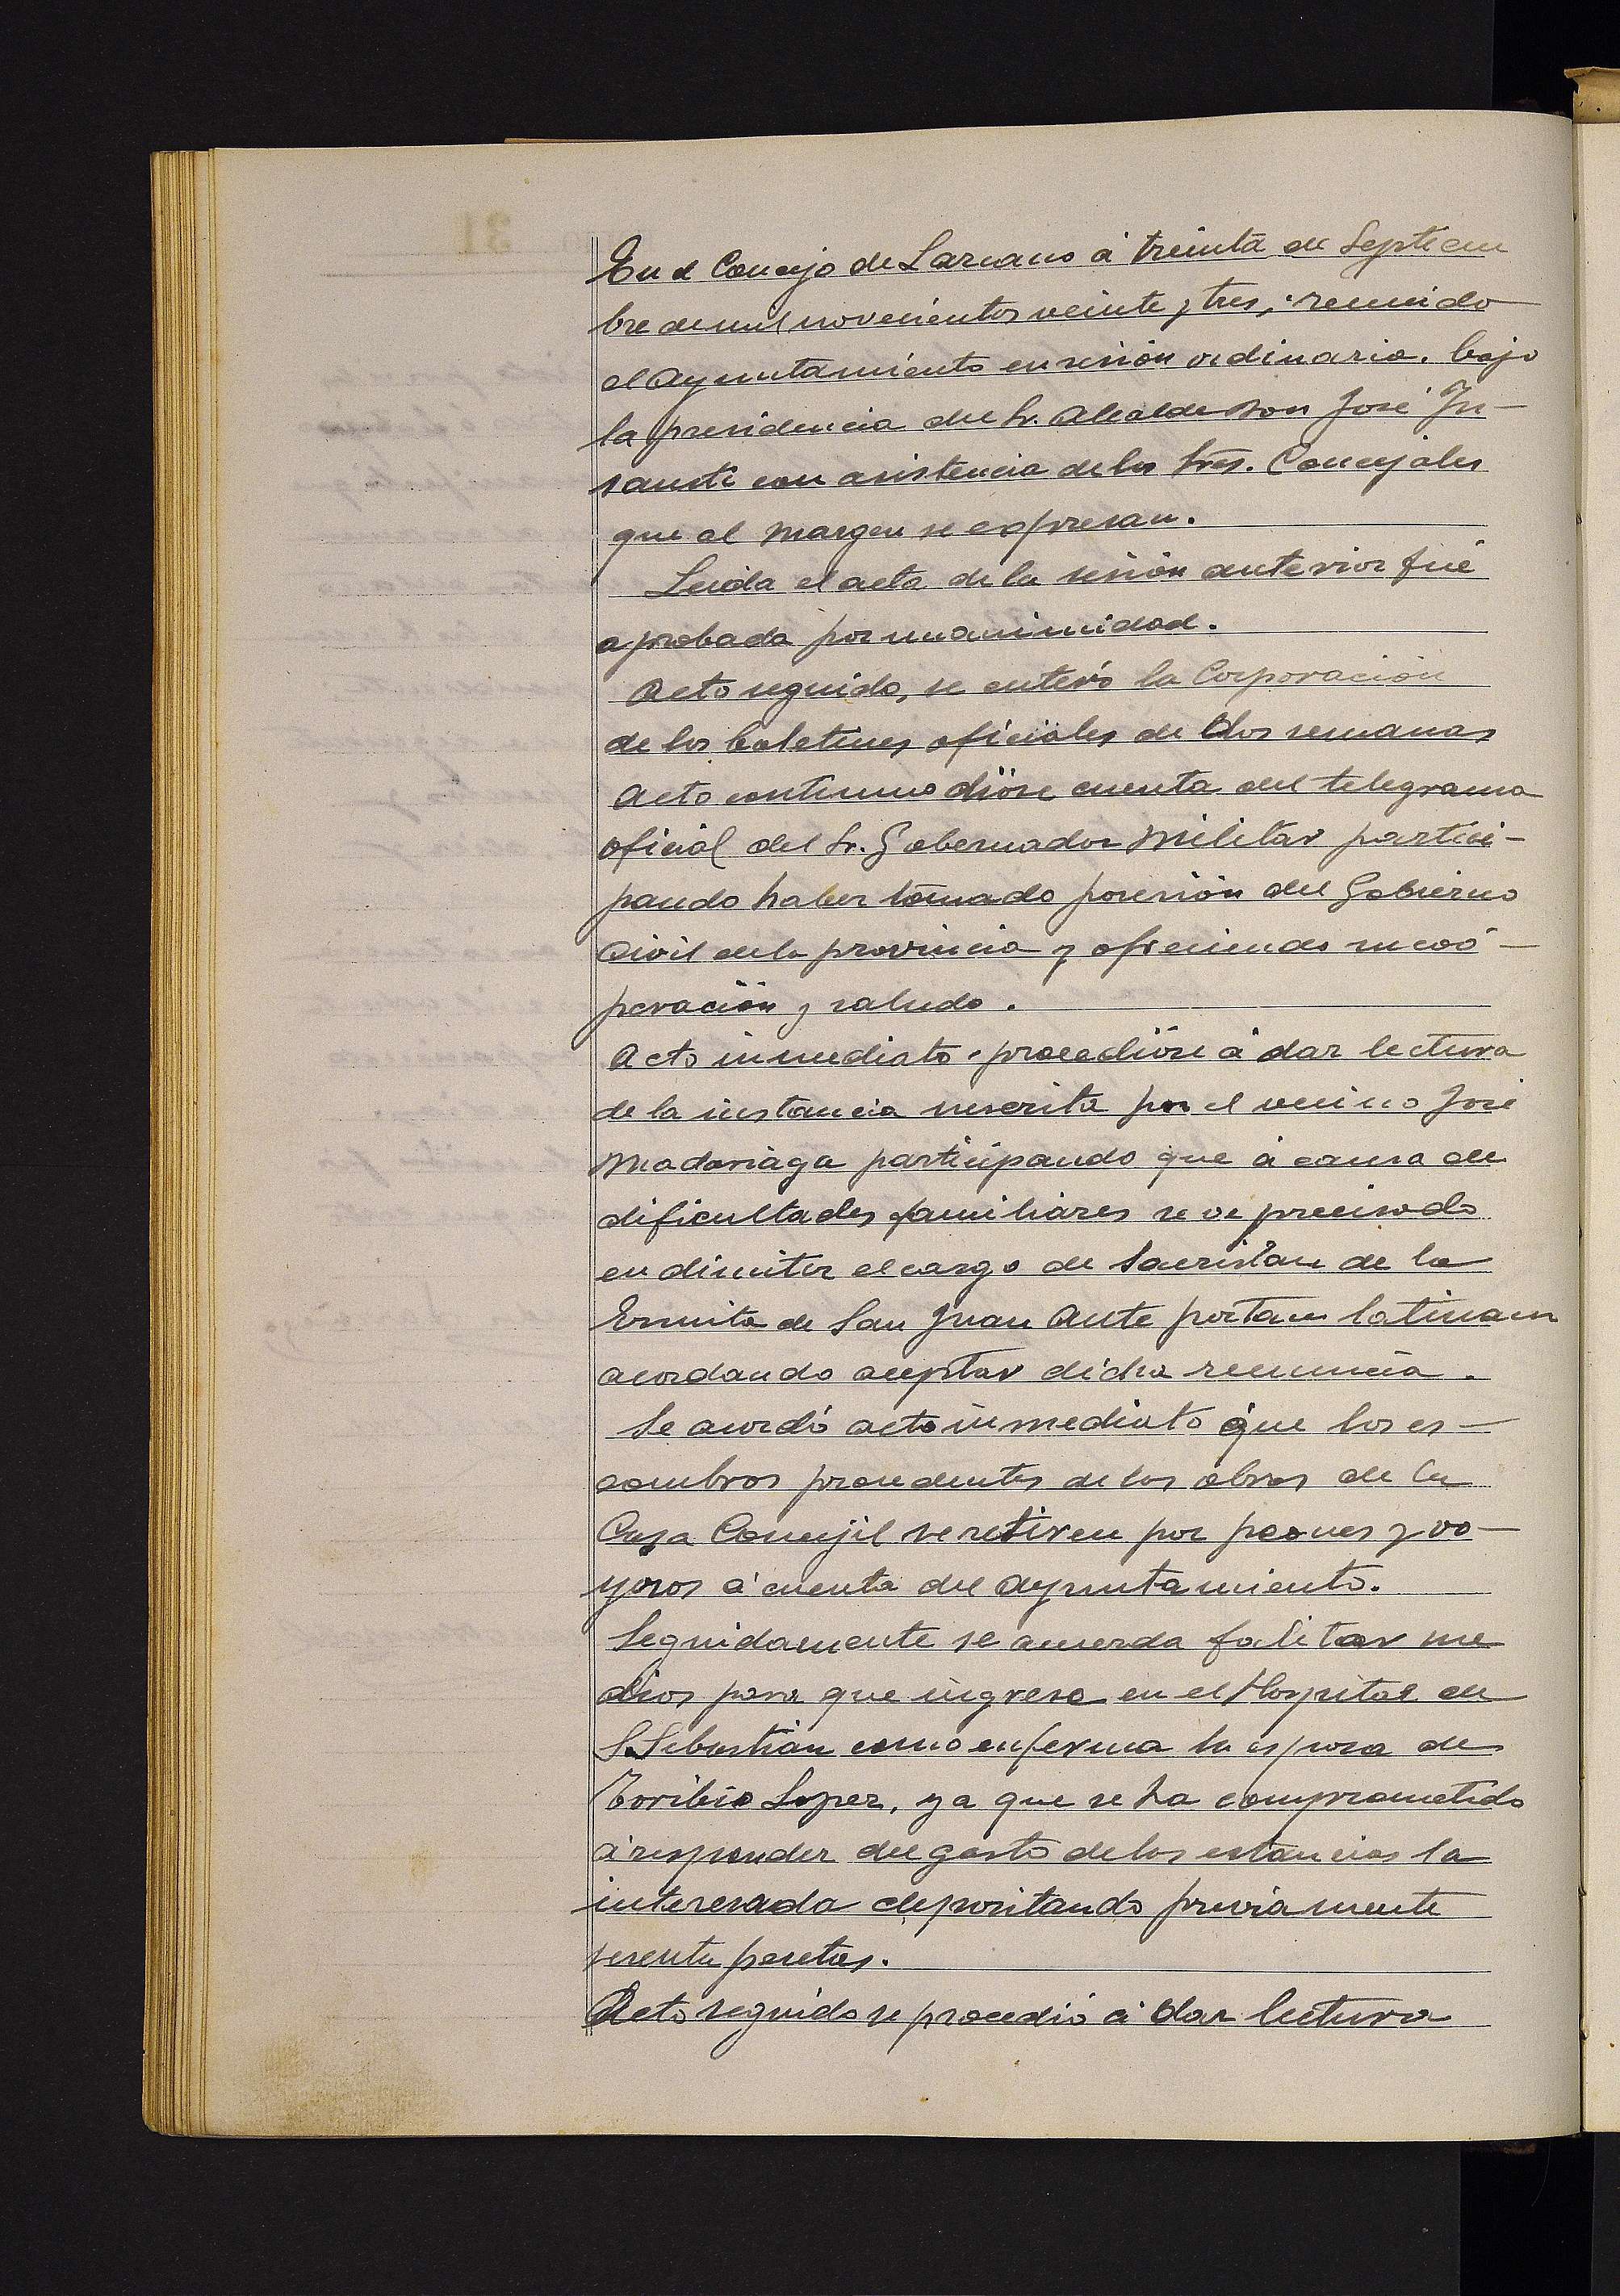 En el Concejo de Lazcano á treinta de Septiem
bre de mil novecientos veinte y tres, reunido
el Ayuntamiento en sesión ordinaria. bajo
la presidencia del Sr. Alcalde Don José In-
sausti con asistencia de los Sres. Concejales
que al margen se expresan.
Leida el acta de la sesión anterior fué
aprobada por unanimidad.
Acto seguido, se enteró la Corporación
de los boletines oficiales de dos semanas
Acto continuo dióse cuenta del telegrama
oficial del Sr. Gobernador Militar partici-
pando haber tomado posesión del Gobierno
Civil de la provincia y ofreciendo su coó-
peración y saludo.
Acto inmediato procedióse á dar lectura
de la instancia suscrita por el vecino José
Madariaga participando que á causa de
dificultades familiares se ve precisado
en dimitir el cargo de Sacristan de la
Ermita de San Juan Ante portam latinam
acordando aceptar dicha renuncia.
Se acordó acto inmediato que los es-
combros procedentes de las obras de la
Casa Concejil se retiren por peones y vo-
yeros á cuenta del Ayuntamiento.
Seguidamente se acuerda falitar me
dios para que ingrese en el Hospital de
S. Sebastián como enferma la esposa de
Toribio Lopez, ya que se ha comprometido
á responder del gasto de las estancias la
interesada depositando previamente
sesenta pesetas.
Acto seguido se procedió á dar lectura
31